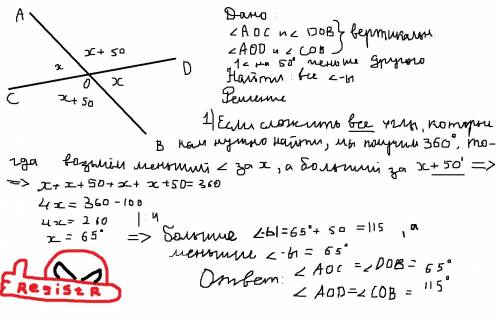 A
x + 50
x
O
x
D
C
x + 50
B
Дано:
∠AOC и ∠DOB } вертикальн
∠AOD и ∠COB
1 < на 50° меньше другого
Найти: все <-ы
Решение
1) Если сложить все углы, которые
нам нужно найти, мы получим 360°, то-
гда возьмём меньший < за x, а больший за x + 50° =>
=> x + x + 50 + x + x + 50 = 360
4x = 360 - 100
4x = 260 | : 4
x = 65° => большие ∠ы = 65° + 50 = 115, а
меньшие <-ы = 65°
Ответ: ∠AOC = ∠DOB = 65°
∠AOD = ∠COB = 115°
RESISTR